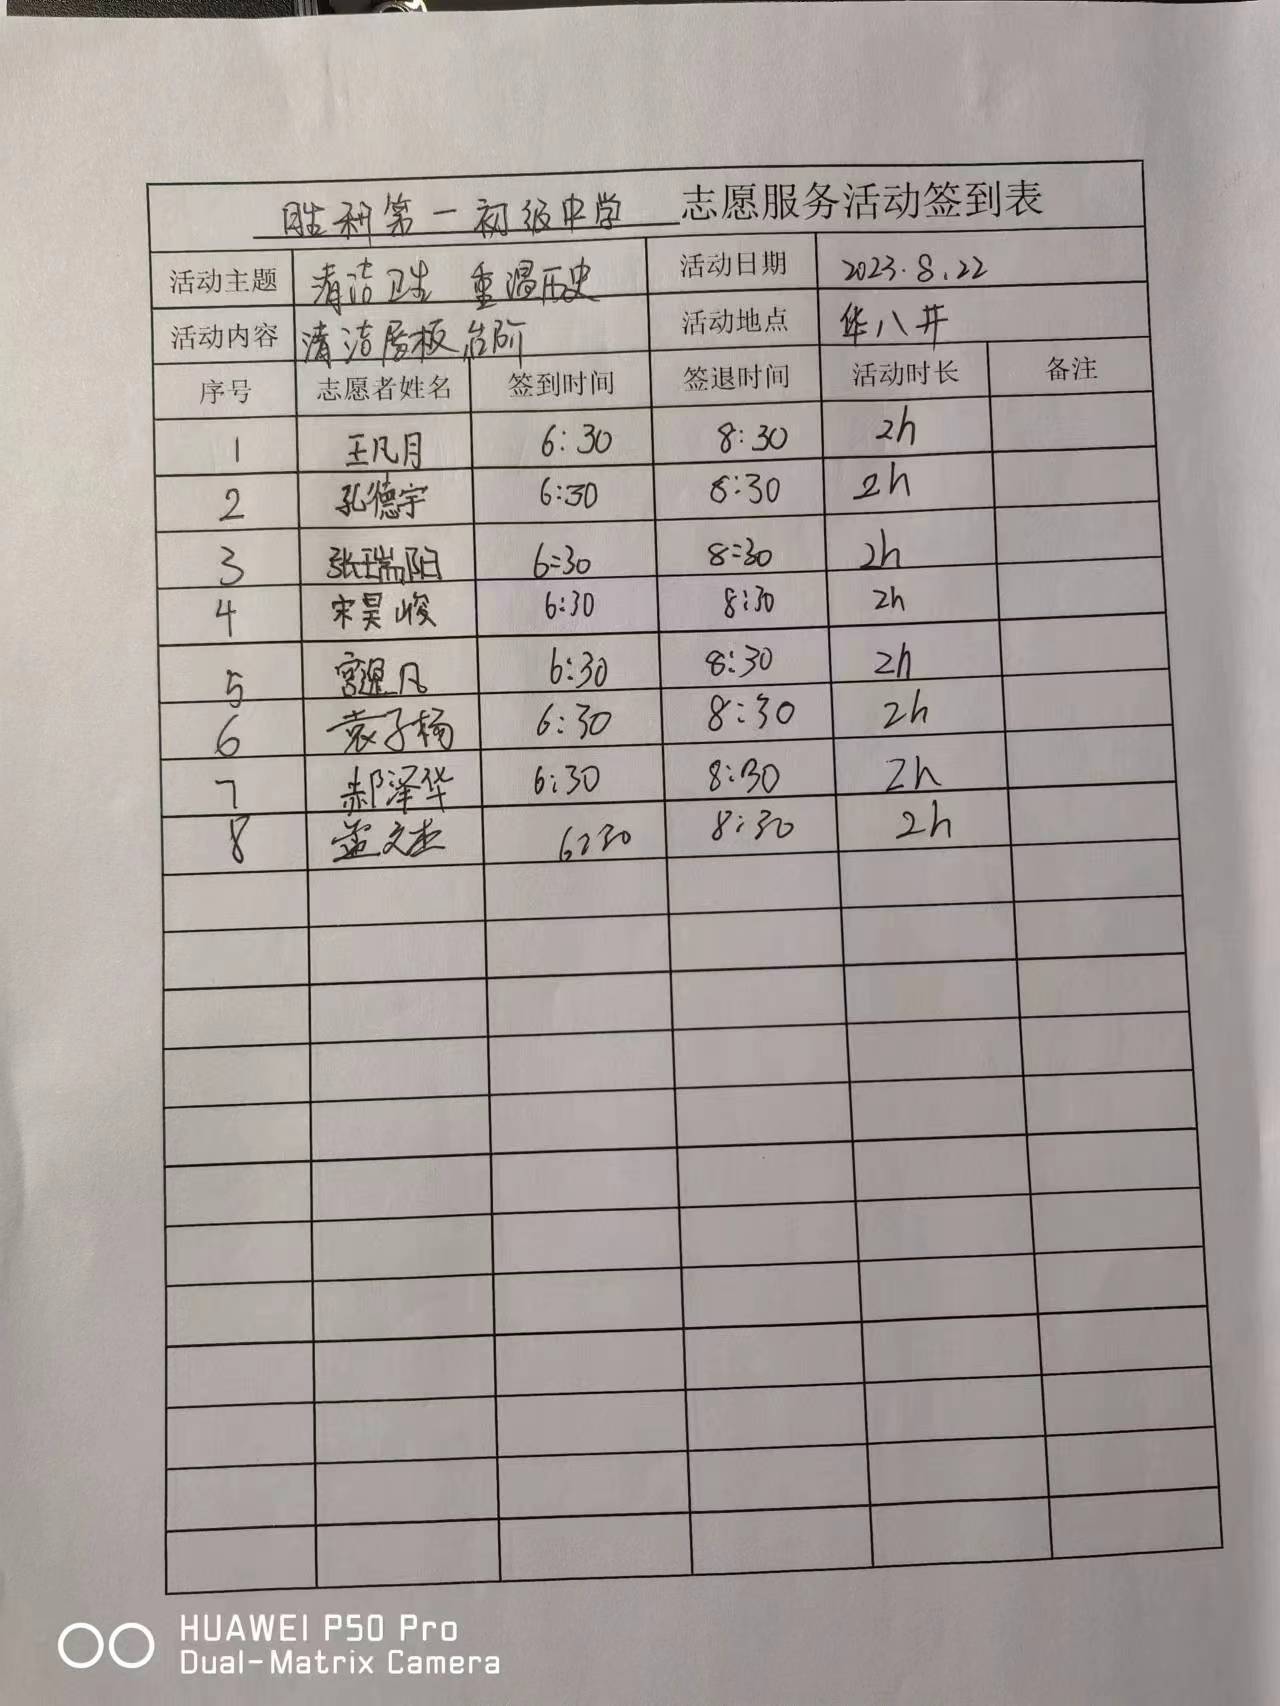 胜利第一初级中学 志愿服务活动签到表
活动主题 清洁卫生 重温历史 活动日期 2023.8.22
活动内容 清洁展板台阶 活动地点 华八井
序号 志愿者姓名 签到时间 签退时间 活动时长 备注
1 王凡月 6:30 8:30 2h
2 孔德宇 6:30 8:30 2h
3 张瑞阳 6:30 8:30 2h
4 宋昊峻 6:30 8:30 2h
5 宫 凡 6:30 8:30 2h
6 袁子杨 6:30 8:30 2h
7 郝泽华 6:30 8:30 2h
8 孟文杰 6:30 8:30 2h
HUAWEI P50 Pro
Dual-Matrix Camera